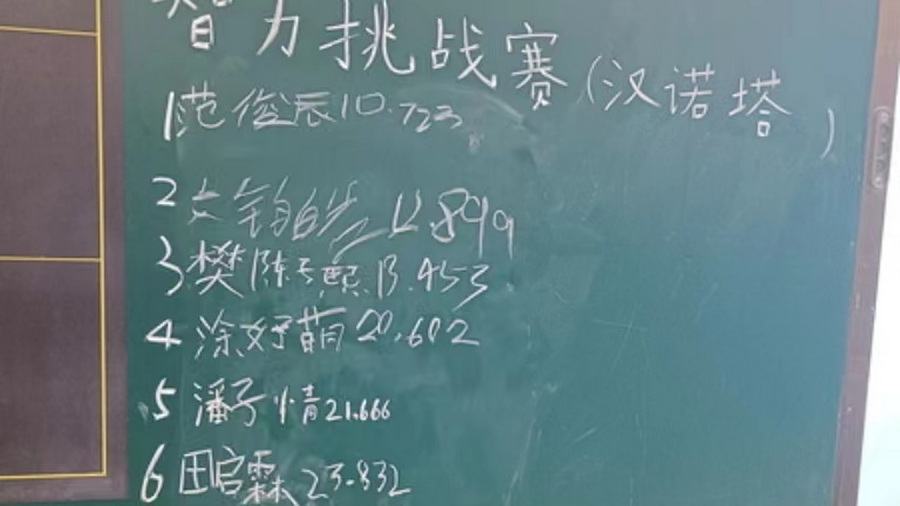 智力挑战赛(汉诺塔)
1范俊辰10.723
2
3樊陈天熙13.453
4涂好萌20.602
5潘子情21.666
6田启霖23.832